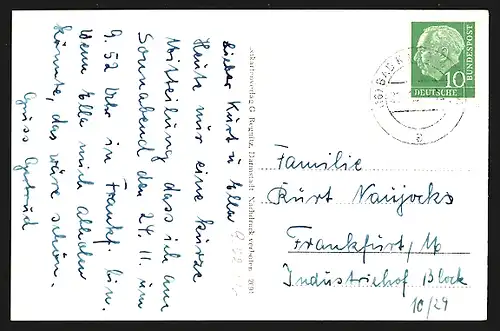 Lieber Kurt u Ella
Heute nur eine kurze
Mitteilung, dass ich am
Sonnabend den 24. 11. um
9.52 Uhr in Frankf. bin.
Wenn Ella mich abholen
könnte, das wäre schön.
Gruss Gertrud
9.52
Nachdruck verboten.
BAD
DEUTSCHE
BUNDESPOST
10
Familie
Kurt Naujocks
Frankfurt/M
Industriehof Block
10/29